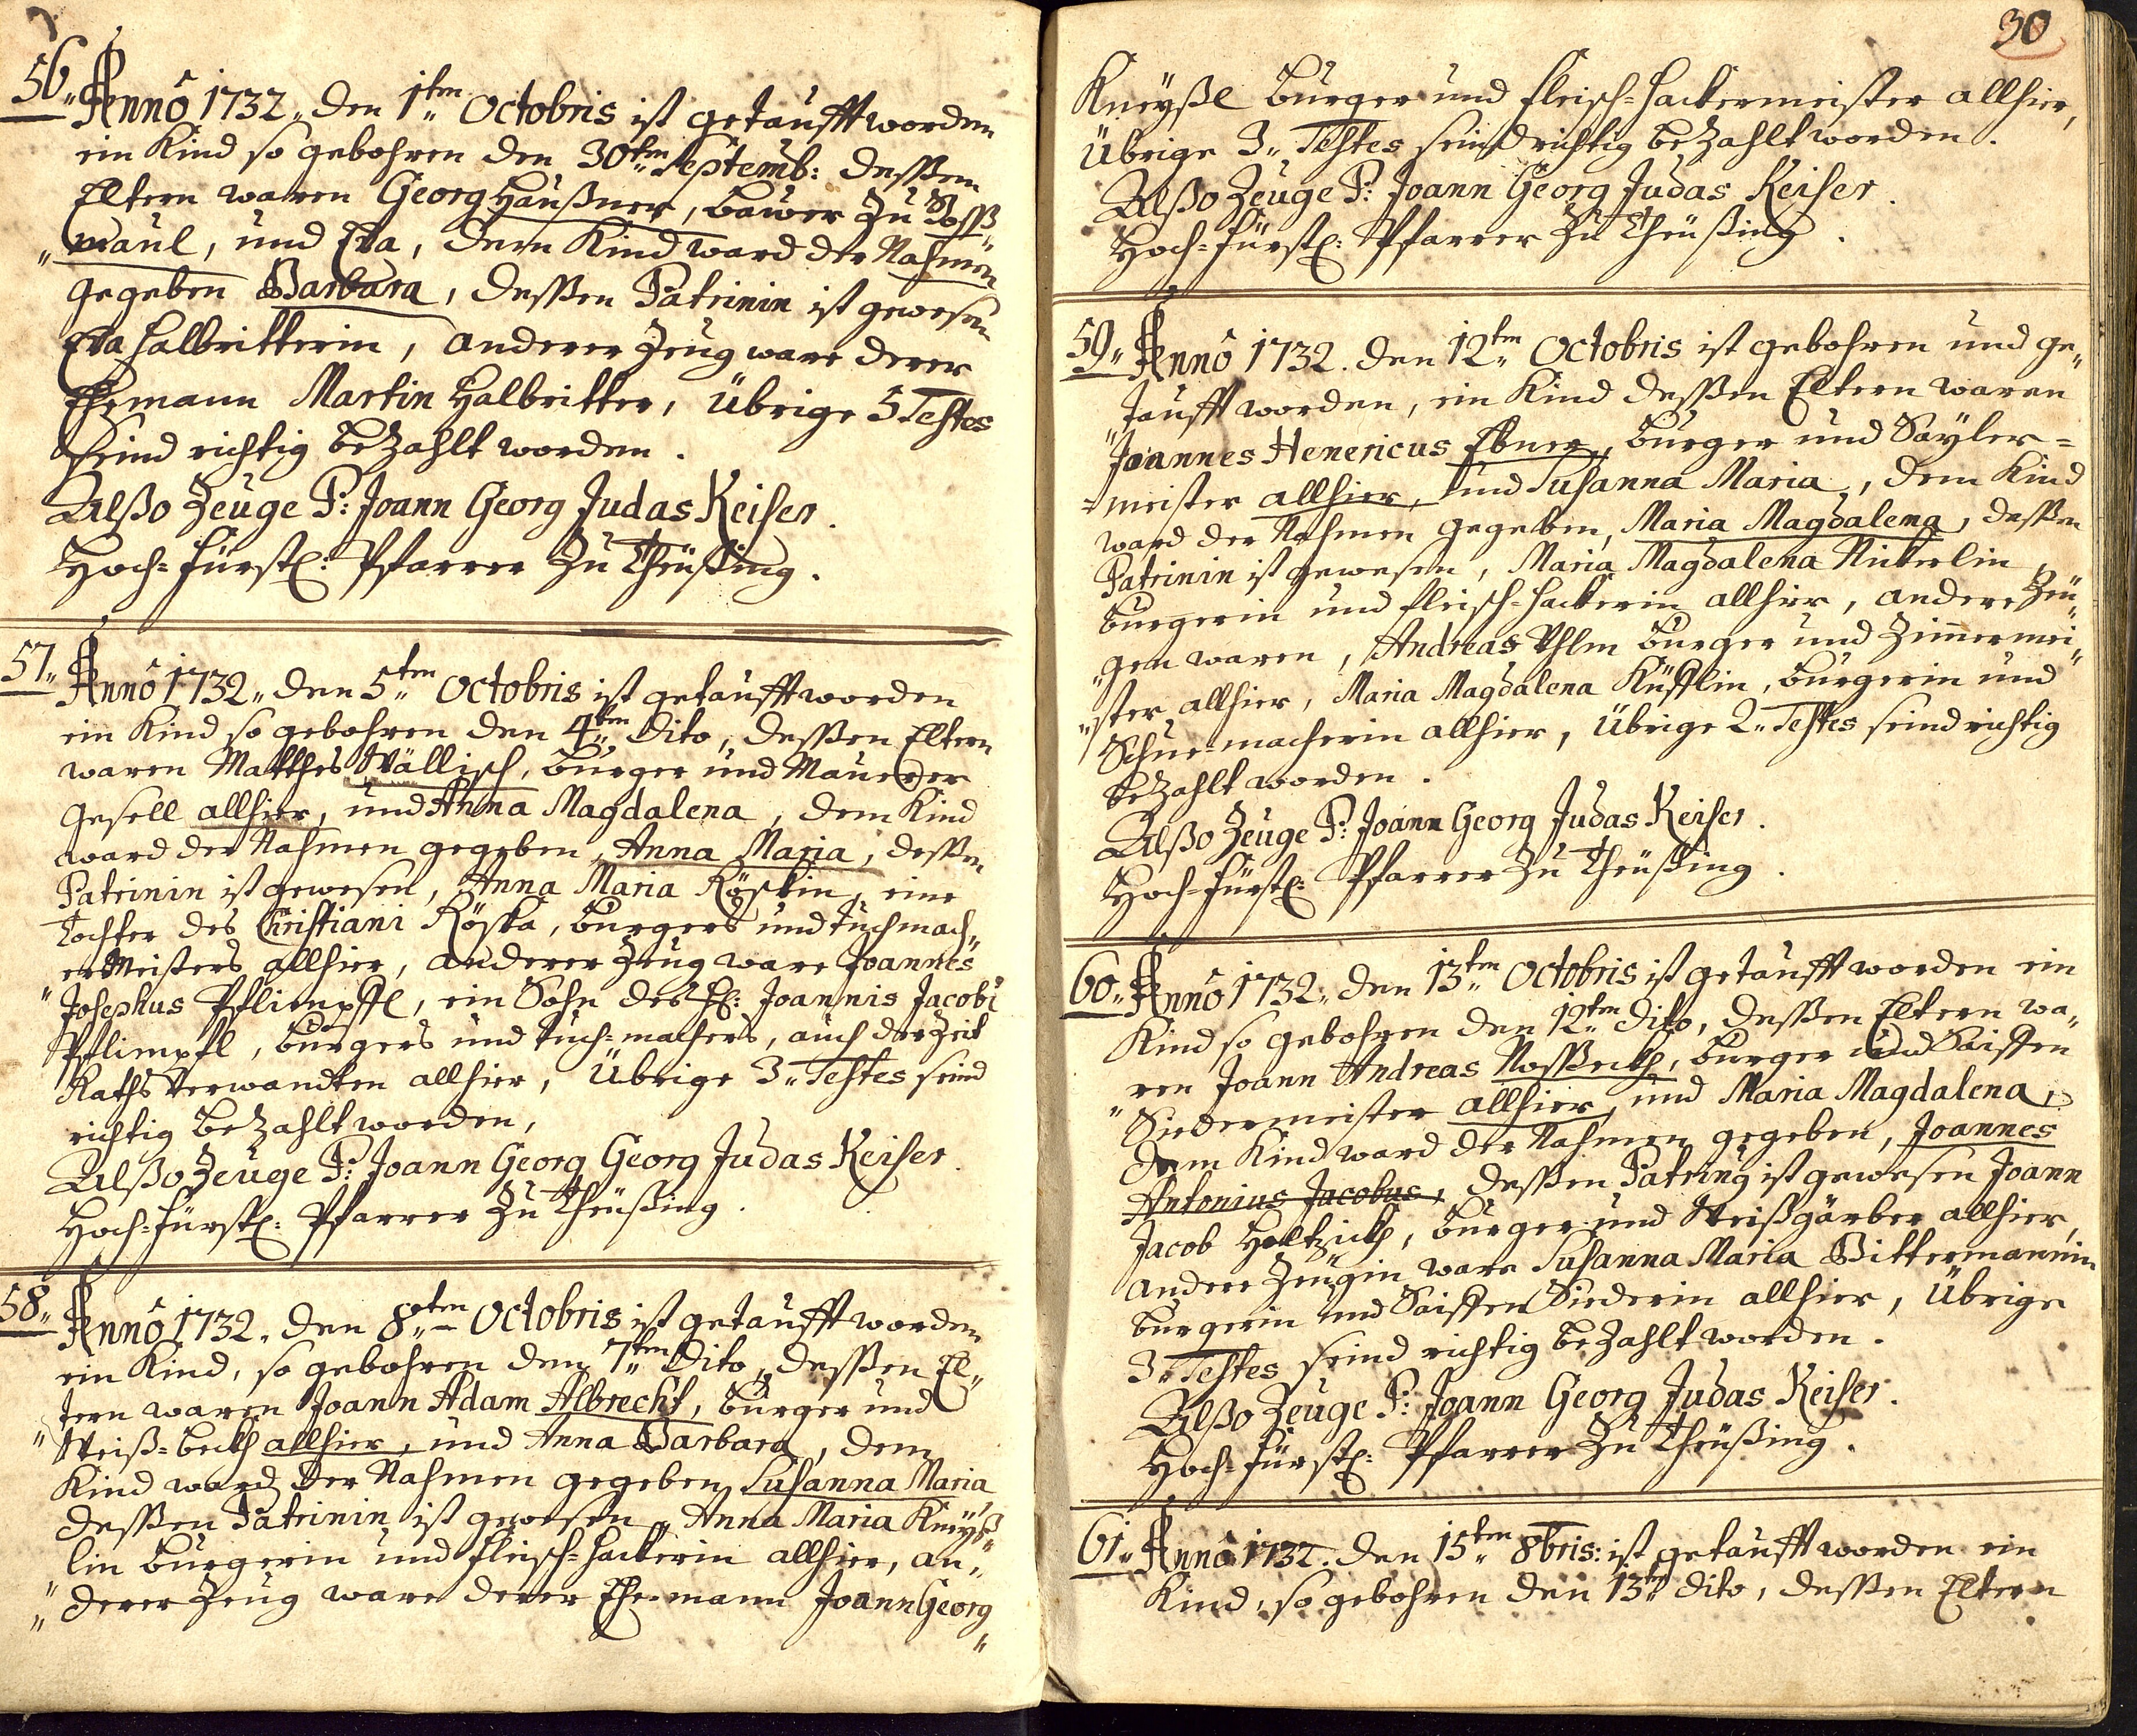 56„ Anno 1732„ den 1ten Octobris ist getaufft worden
ein Kind so gebohren den 30ten Septemb: dessen
Eltern waren Georg Haußner, bawer zu Roß„
„maul, und Eva, dem Kind ward der Nahmen
gegeben Barbara, dessen Patrinin ist gewesen
Eva Halbritterin, anderer Zeug ware derer
Ehemann Martin Halbritter, Übrige 5 Testes
seind richtig bezahlt worden.
Alßo Zeuge P: Joann Georg Judas Keiser.
Hoch=fürstl: Pfarrer zu Theüßing.
57„ Anno 1732„ den 5ten Octobris ist getaufft worden
ein Kind so gebohren den 4ten dito, dessen Eltern
waren Matthes Wällisch, burger und Maurer
gesell allhier, und Anna Magdalena, dem Kind
ward der Nahmen gegeben, Anna Maria, dessen
Patrinin ist gewesen, Anna Maria Röskin, eine
Tochter des Christiani Röska, burgers und tuchmach„
„er Meisters allhier, anderer Zeug ware Joannes
Josephus Pflimpfl, ein Sohn des H: Joannis Jacobi
Pflimpfl, burgers und tuch=machers, auch der Zeit
Raths Verwandten allhier, Übrige 3„ Testes seind
richtig bezahlt worden,
Alßo Zeuge P: Joann Georg Georg Judas Keiser.
Hoch=fürstl: Pfarrer zu Theüßing.
58„ Anno 1732. den 8ten Octobris ist getaufft worden
ein Kind, so gebohren den 7ten dito, dessen El„
„tern waren Joann Adam Albrecht, burger und
Weiß=beckh allhier, und Anna Barbara, dem
Kind ward der Nahmen gegeben Susanna Maria
dessen Patrinin ist gewesen, Anna Maria Kneyß„
„lin burgerin und fleisch=hackerin allhier, an„
„derer Zeug ware derer Ehe=mann Joann Georg„
30
Kneyßl burger und fleisch=hackermeister allhier,
Übrige 3„ Testes seind richtig bezahlt worden.
Alßo Zeuge P: Joann Georg Judas Keiser.
Hoch=fürstl: Pfarrer zu Theüßing.
59„ Anno 1732. den 12ten Octobris ist gebohren und ge„
„taufft worden, ein Kind dessen Eltern waren
Joannes Henericus Ebner, burger und Sayler=
=meister allhier, und Susanna Maria, dem Kind
ward der Nahmen gegeben, Maria Magdalena, dessen
Patrinin ist gewesen, Maria Magdalena Nickerlin
burgerin und fleisch=hackerin allhier, andere Zeu„
„gen waren, Andreas Uhlm burger und Zimermei„
„ster allhier, Maria Magdalena Küfflin, burgerin und
Schue=macherin allhier, Übrige 2„ Testes seind richtig
bezahlt worden.
Alßo Zeuge P: Joann Georg Judas Keiser.
Hoch=fürstl: Pfarrer zu Theüßing.
60„ Anno 1732„ den 13ten Octobris ist getaufft worden ein
Kind so gebohren den 12ten dito, dessen Eltern wa„
„ren Joann Andreas Nosseckh, burger und Saiffen
Siedermeister allhier, und Maria Magdalena,
dem Kind ward der Nahmen gegeben, Joannes
Antonius Jacobus, dessen Patring ist gewesen Joann
Jacob Holtzickh, burger und Weißgärber allhier,
andere Zeugin ware Susanna Maria Bittermannin
burgerin und Saiffen Siederin allhier, Übrige
3„ Testes seind richtig bezahlt worden.
Alßo Zeuge P: Joann Georg Judas Keiser.
Hoch=fürstl: Pfarrer zu Theüßing.
61„ Anno 1732. den 15ten 8bris: ist getaufft worden ein
Kind, so gebohren den 13ten dito, dessen Eltern